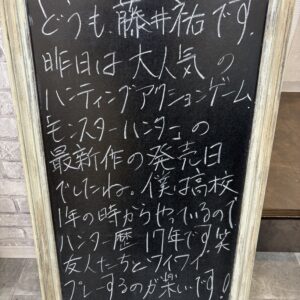 どうも、藤井祐です。
昨日は大人気の
ハンティングアクションゲーム、
モンスターハンターの
最新作の発売日
でしたね。僕は高校
1年の時からやっているので
ハンター歴17年です。笑
友人たちとワイワイ
プレーするのが楽しいです!